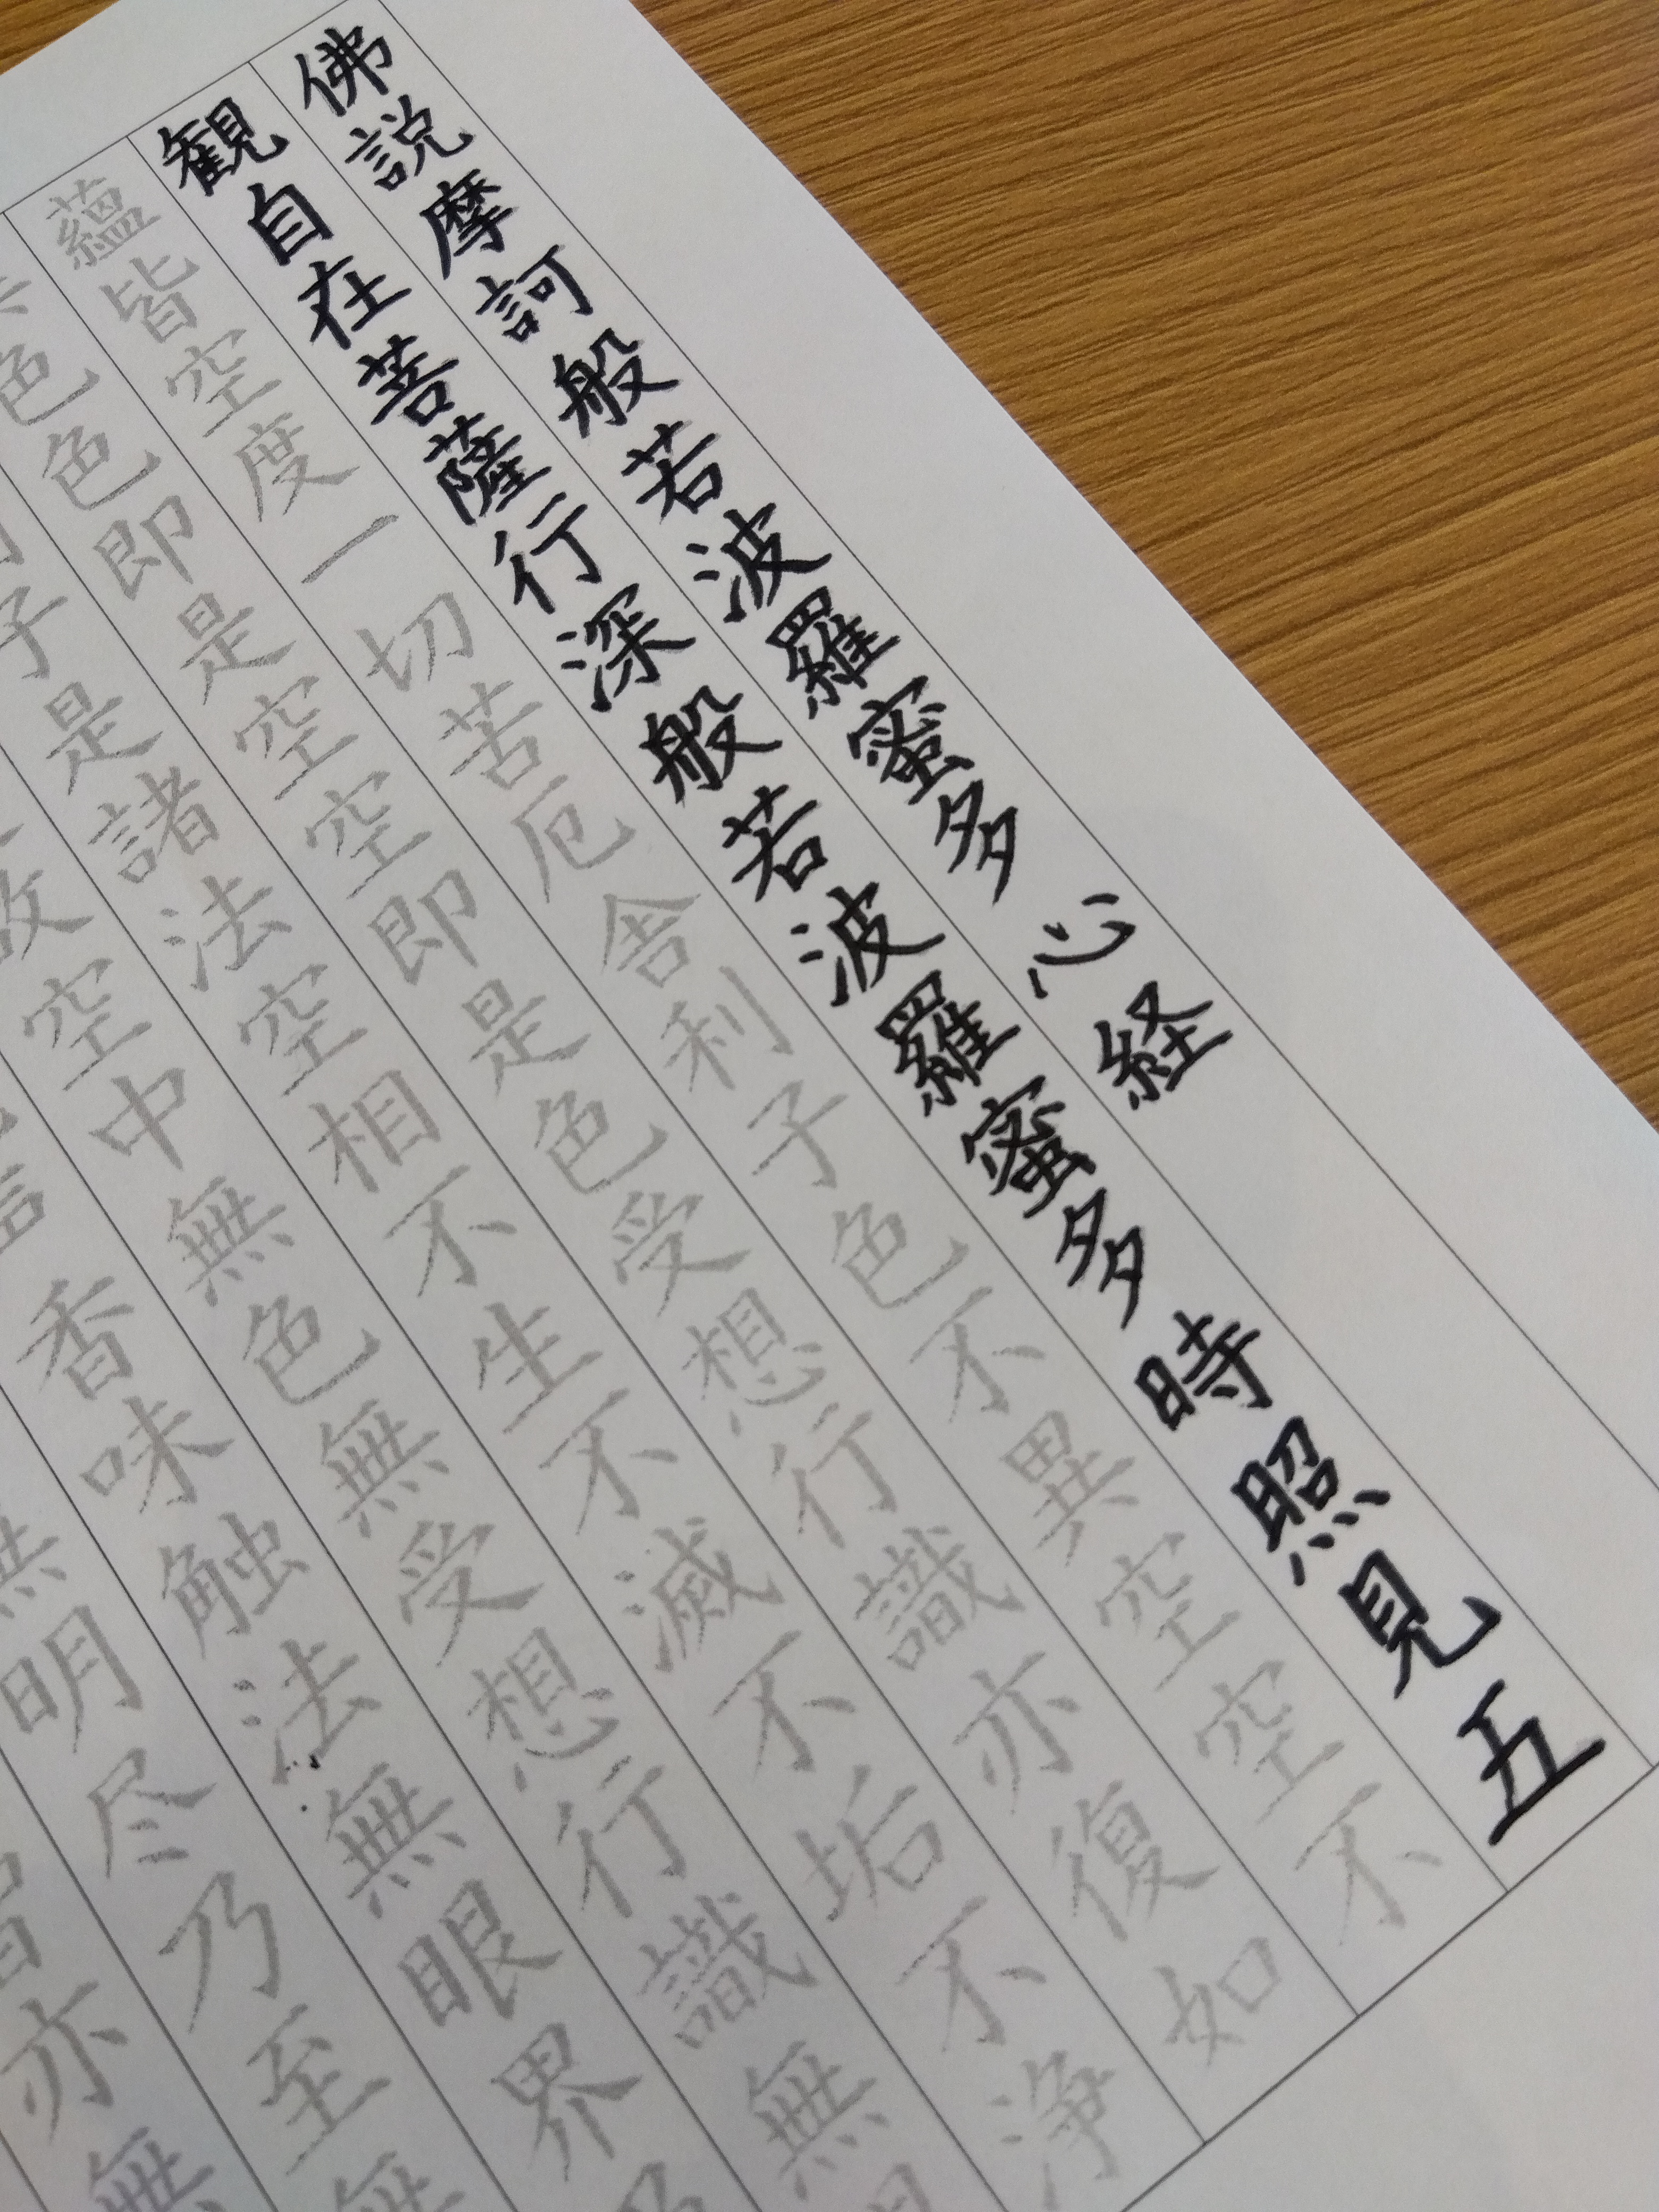 佛説摩訶般若波羅蜜多心経
観自在菩薩行深般若波羅蜜多時照見五
蘊皆空度一切苦厄舎利子色不異空空不
色色即是空空即是色受想行識亦復如
子是諸法空相不生不滅不垢不浄
故空中無色無受想行識無
香味触法無眼界乃
無明尽乃至無
亦無